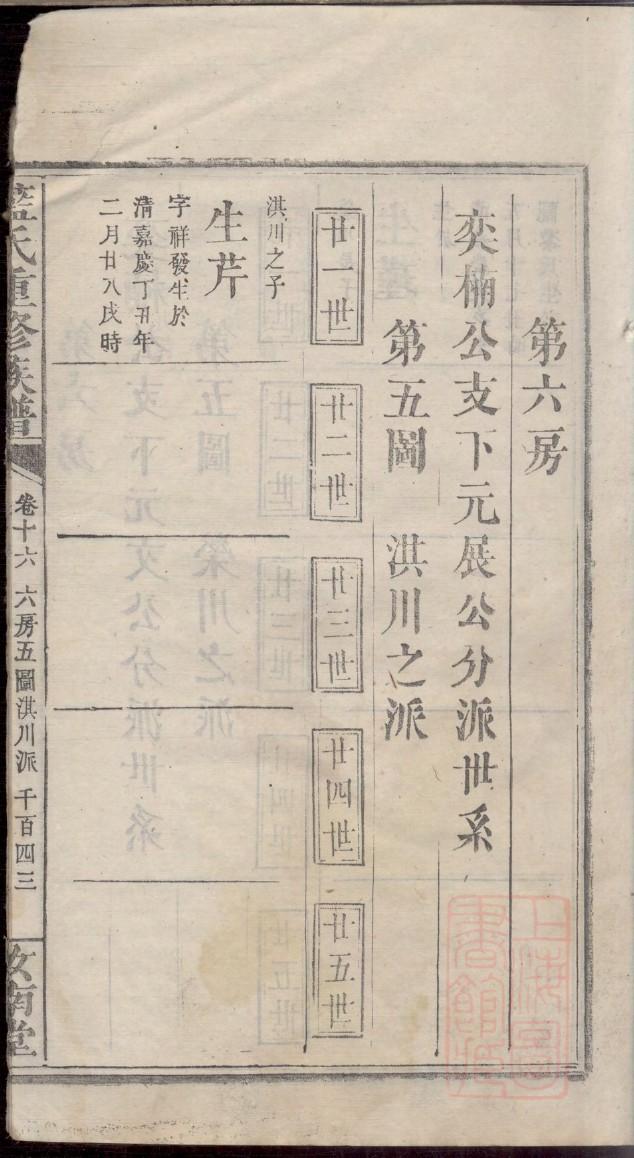 第六房
奕楠公支下元展公分派世系
第五圖 淇川之派
廿一世
廿二世
廿三世
廿四世
廿五世
淇川之子
生芹
字祥發生於
清嘉慶丁丑年
二月廿八戌時
藍氏重修族譜
卷十六 六房五圖淇川派 千百四三
汝南堂
上海圖書館藏